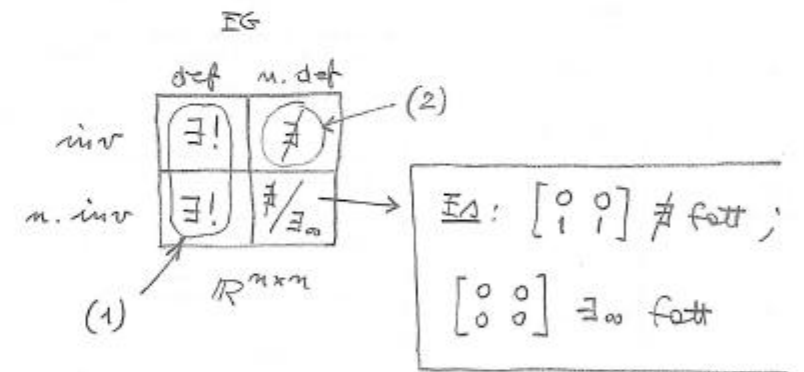 EG
def n. def
inv ∃! ∄ (2)
n. inv ∃! ∄/∃∞
ℝⁿˣⁿ
(1)
Es: [0 0; 1 1] ∄ fatt;
[0 0; 0 0] ∃∞ fatt